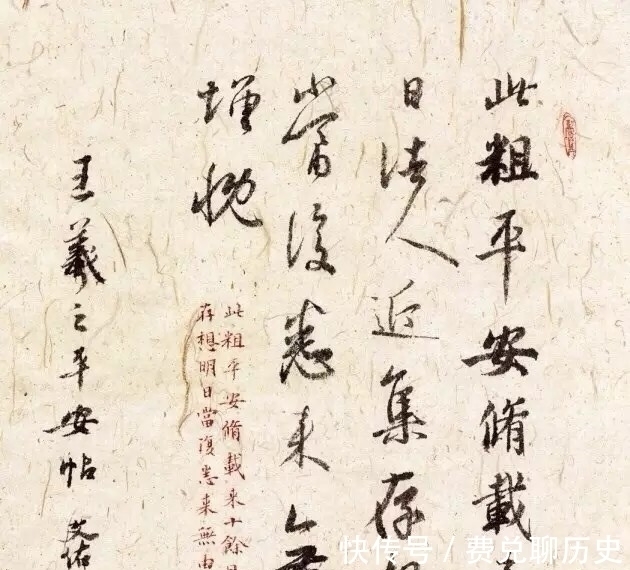 此粗平安脩載
日諸人近集存
當復悉来無
增慨
此粗平安脩載来十餘日
存想明日當復悉来無由
王羲之平安帖
快传号 / 费兑聊历史